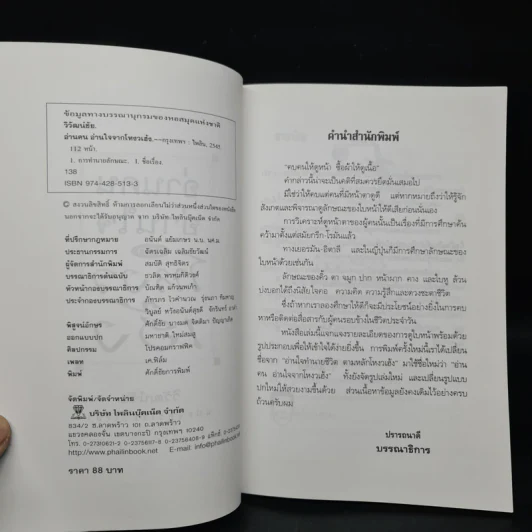 ข้อมูลทางบรรณานุกรมของหอสมุดแห่งชาติ
วิวัฒน์ชัย.
อ่านคน อ่านใจจากโหงวเฮ้ง.--กรุงเทพฯ : ไพลิน, 2545.
112 หน้า.
1. การทำนายลักษณะ. 1. ชื่อเรื่อง.
138
ISBN 974-428-513-3
© สงวนลิขสิทธิ์
ที่ปรึกษากฎหมาย
ประธานกรรมการ
ผู้จัดการสำนักพิมพ์ สมบัติ สุทธิจิตร
บรรณาธิการต้นฉบับ
หัวหน้ากองบรรณาธิการ
ประจำกองบรรณาธิการ
พิสูจน์อักษร
ออกแบบปก
ศิลปกรรม
เพลท เค.ฟิล์ม
พิมพ์ ศักดิ์ชัยการพิมพ์
จัดพิมพ์/จัดจำหน่าย
บริษัท ไพลินบุ๊คเน็ต จำกัด
834/2 ซ.ลาดพร้าว 101 ถ.ลาดพร้าว
แขวงคลองจั่น เขตบางกะปิ กรุงเทพฯ 10240
http://www.phailinbook.net E-mail: info@phailinbook.net
ราคา 88 บาท
คำนำสำนักพิมพ์
"คบคนให้ดูหน้า ซื้อผ้าให้ดูเนื้อ"
คำกล่าวนี้น่าจะเป็นคติที่สมควรยึดมั่นเสมอไป
มิใช่ว่าให้คบแต่คนที่มีหน้าตาดูดี แต่หากหมายถึงว่าให้รู้จัก
สังเกตและพิจารณาดูลักษณะของใบหน้าให้ดีเสียก่อนนั่นเอง
การวิเคราะห์ดูหน้าตาของมนุษย์นั้นเป็นเรื่องที่มีการศึกษาค้น
คว้ามาตั้งแต่สมัยกรีก-โรมันแล้ว
ทางเยอรมัน-อิตาลี และในญี่ปุ่นก็มีการศึกษาลักษณะของ
ใบหน้าด้วยเช่นกัน
ลักษณะของคิ้ว ตา จมูก ปาก หน้าผาก คาง และใบหู ล้วน
บ่งบอกได้ถึงนิสัยใจคอ ความคิด ความรู้สึกและดวงชะตาชีวิต
ซึ่งถ้าหากเราลองศึกษาให้ดีก็จะมีประโยชน์อย่างยิ่งในการคบ
หาหรือติดต่อสื่อสารกับผู้คนรอบข้างในชีวิตประจำวัน
หนังสือเล่มนี้แจกแจงรายละเอียดของการดูใบหน้าพร้อมด้วย
รูปประกอบเพื่อให้เข้าใจได้ง่ายยิ่งขึ้น การพิมพ์ครั้งใหม่นี้เราได้เปลี่ยน
ชื่อจาก "อ่านใจทำนายชีวิต ตามหลักโหงวเฮ้ง" มาใช้ชื่อใหม่ว่า "อ่าน
คน อ่านใจจากโหงวเฮ้ง" ทั้งยังจัดรูปเล่มใหม่ และเปลี่ยนรูปแบบ
ปกใหม่ให้สวยงามขึ้นด้วย ส่วนเนื้อหาข้อมูลยังคงเดิมไว้อย่างครบ
ถ้วนครับผม
ปรารถนาดี
บรรณาธิการ